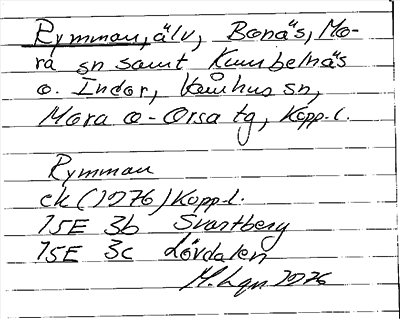 Rymman, älv, Bonäs, Mo-
ra sn samt Kumbelnäs
o. Indor, Våmhus sn,
Mora o- Orsa tg, Kopp.l.
Rymman
ek (1976) Kopp.l.
15E 3b Svartberg
15E 3c Lövdalen
M. Lgn 1976